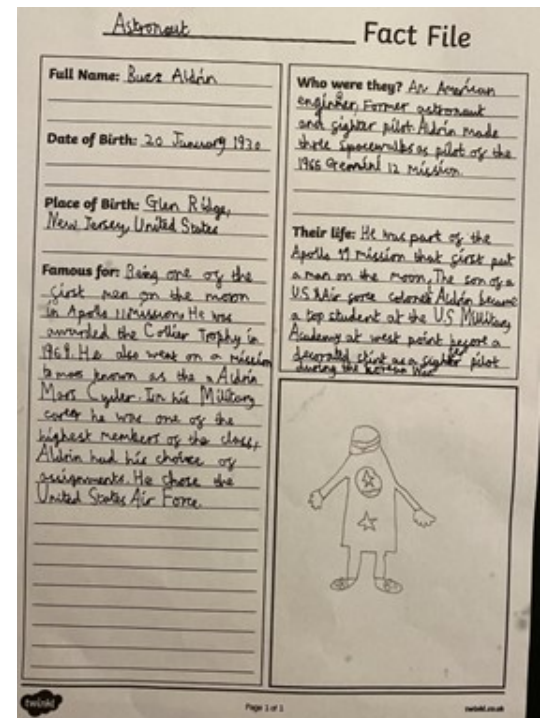 Astronaut Fact File
Full Name: Buzz Aldrin
Date of Birth: 20 January 1930
Place of Birth: Glen Ridge,
New Jersey, United States
Famous for: Being one of the
first men on the moon
in Apollo 11 mission. He was
awarded the Collier Trophy in
1969. He also went on a mission
to mars known as the Aldrin
Mars Cycler. In his Military
career he was one of the
highest members of the class,
Aldrin had his choice of
assignments. He chose the
United States Air Force.
Who were they? An American
enginner, Former astronaut
and fighter pilot. Aldrin made
three spacewalks as pilot of the
1966 Gemini 12 mission.
Their life: He was part of the
Apollo 11 mission that first put
a man on the moon. The son of a
U.S Air force colonel Aldrin became
a top student at the U.S Military
Academy at west point before a
decorated stint as a fighter pilot
during the korean War
twinkl
Page 1 of 1
twinkl.co.uk